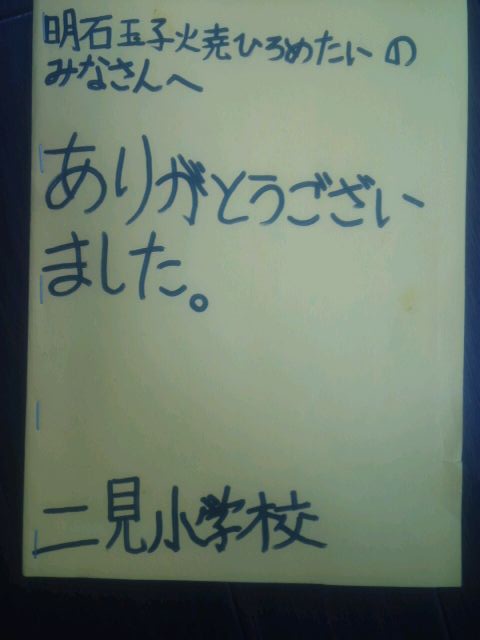 明石玉子焼ひろめたいの
みなさんへ
ありがとうござい
ました。
二見小学校